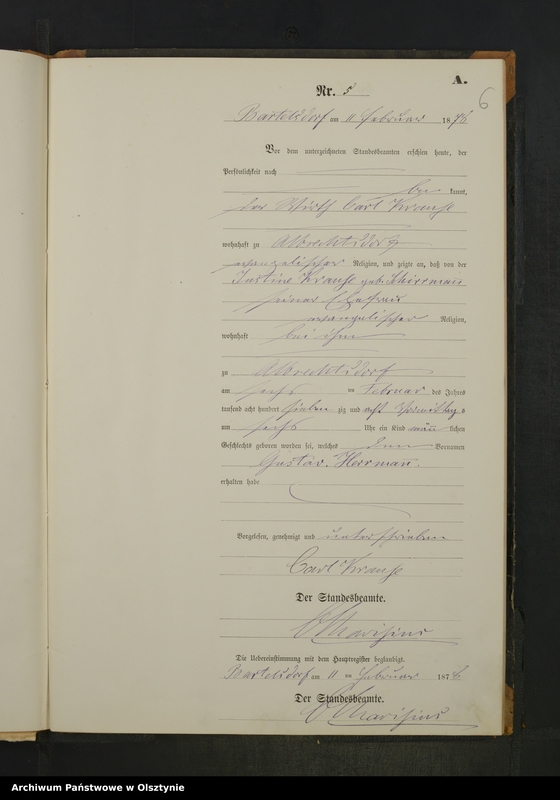 A.
6
Nr. 5
Bartelsdorf am 11 Februar 1878
Vor dem unterzeichneten Standesbeamten erschien heute, der
Persönlichkeit nach
be kannt,
der Wirth Carl Krause
wohnhaft zu Albrechtsdorf
evangelischer Religion, und zeigte an, daß von der
Justine Krause geb. Schirrmann
seiner Ehefrau
evangelischer Religion,
wohnhaft bei ihm
zu Albrechtsdorf
am sechs ten Februar des Jahres
tausend acht hundert sieben zig und acht Vormittags
um sechs Uhr ein Kind männ lichen
Geschlechts geboren worden sei, welches den Vornamen
Gustav Herrmann
erhalten habe
Vorgelesen, genehmigt und unterschrieben
Carl Krause
Der Standesbeamte.
Die Uebereinstimmung mit dem Hauptregister beglaubigt.
Bartelsdorf am 11 ten Februar 187
Der Standesbeamte.
Archiwum Państwowe w Olsztynie